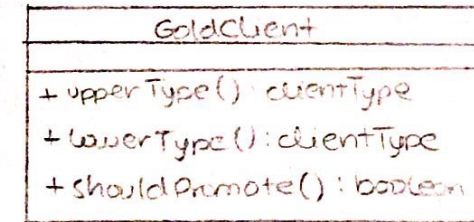 GoldClient
+ upperType() : clientType
+ lowerType() : clientType
+ shouldPromote() : boolean